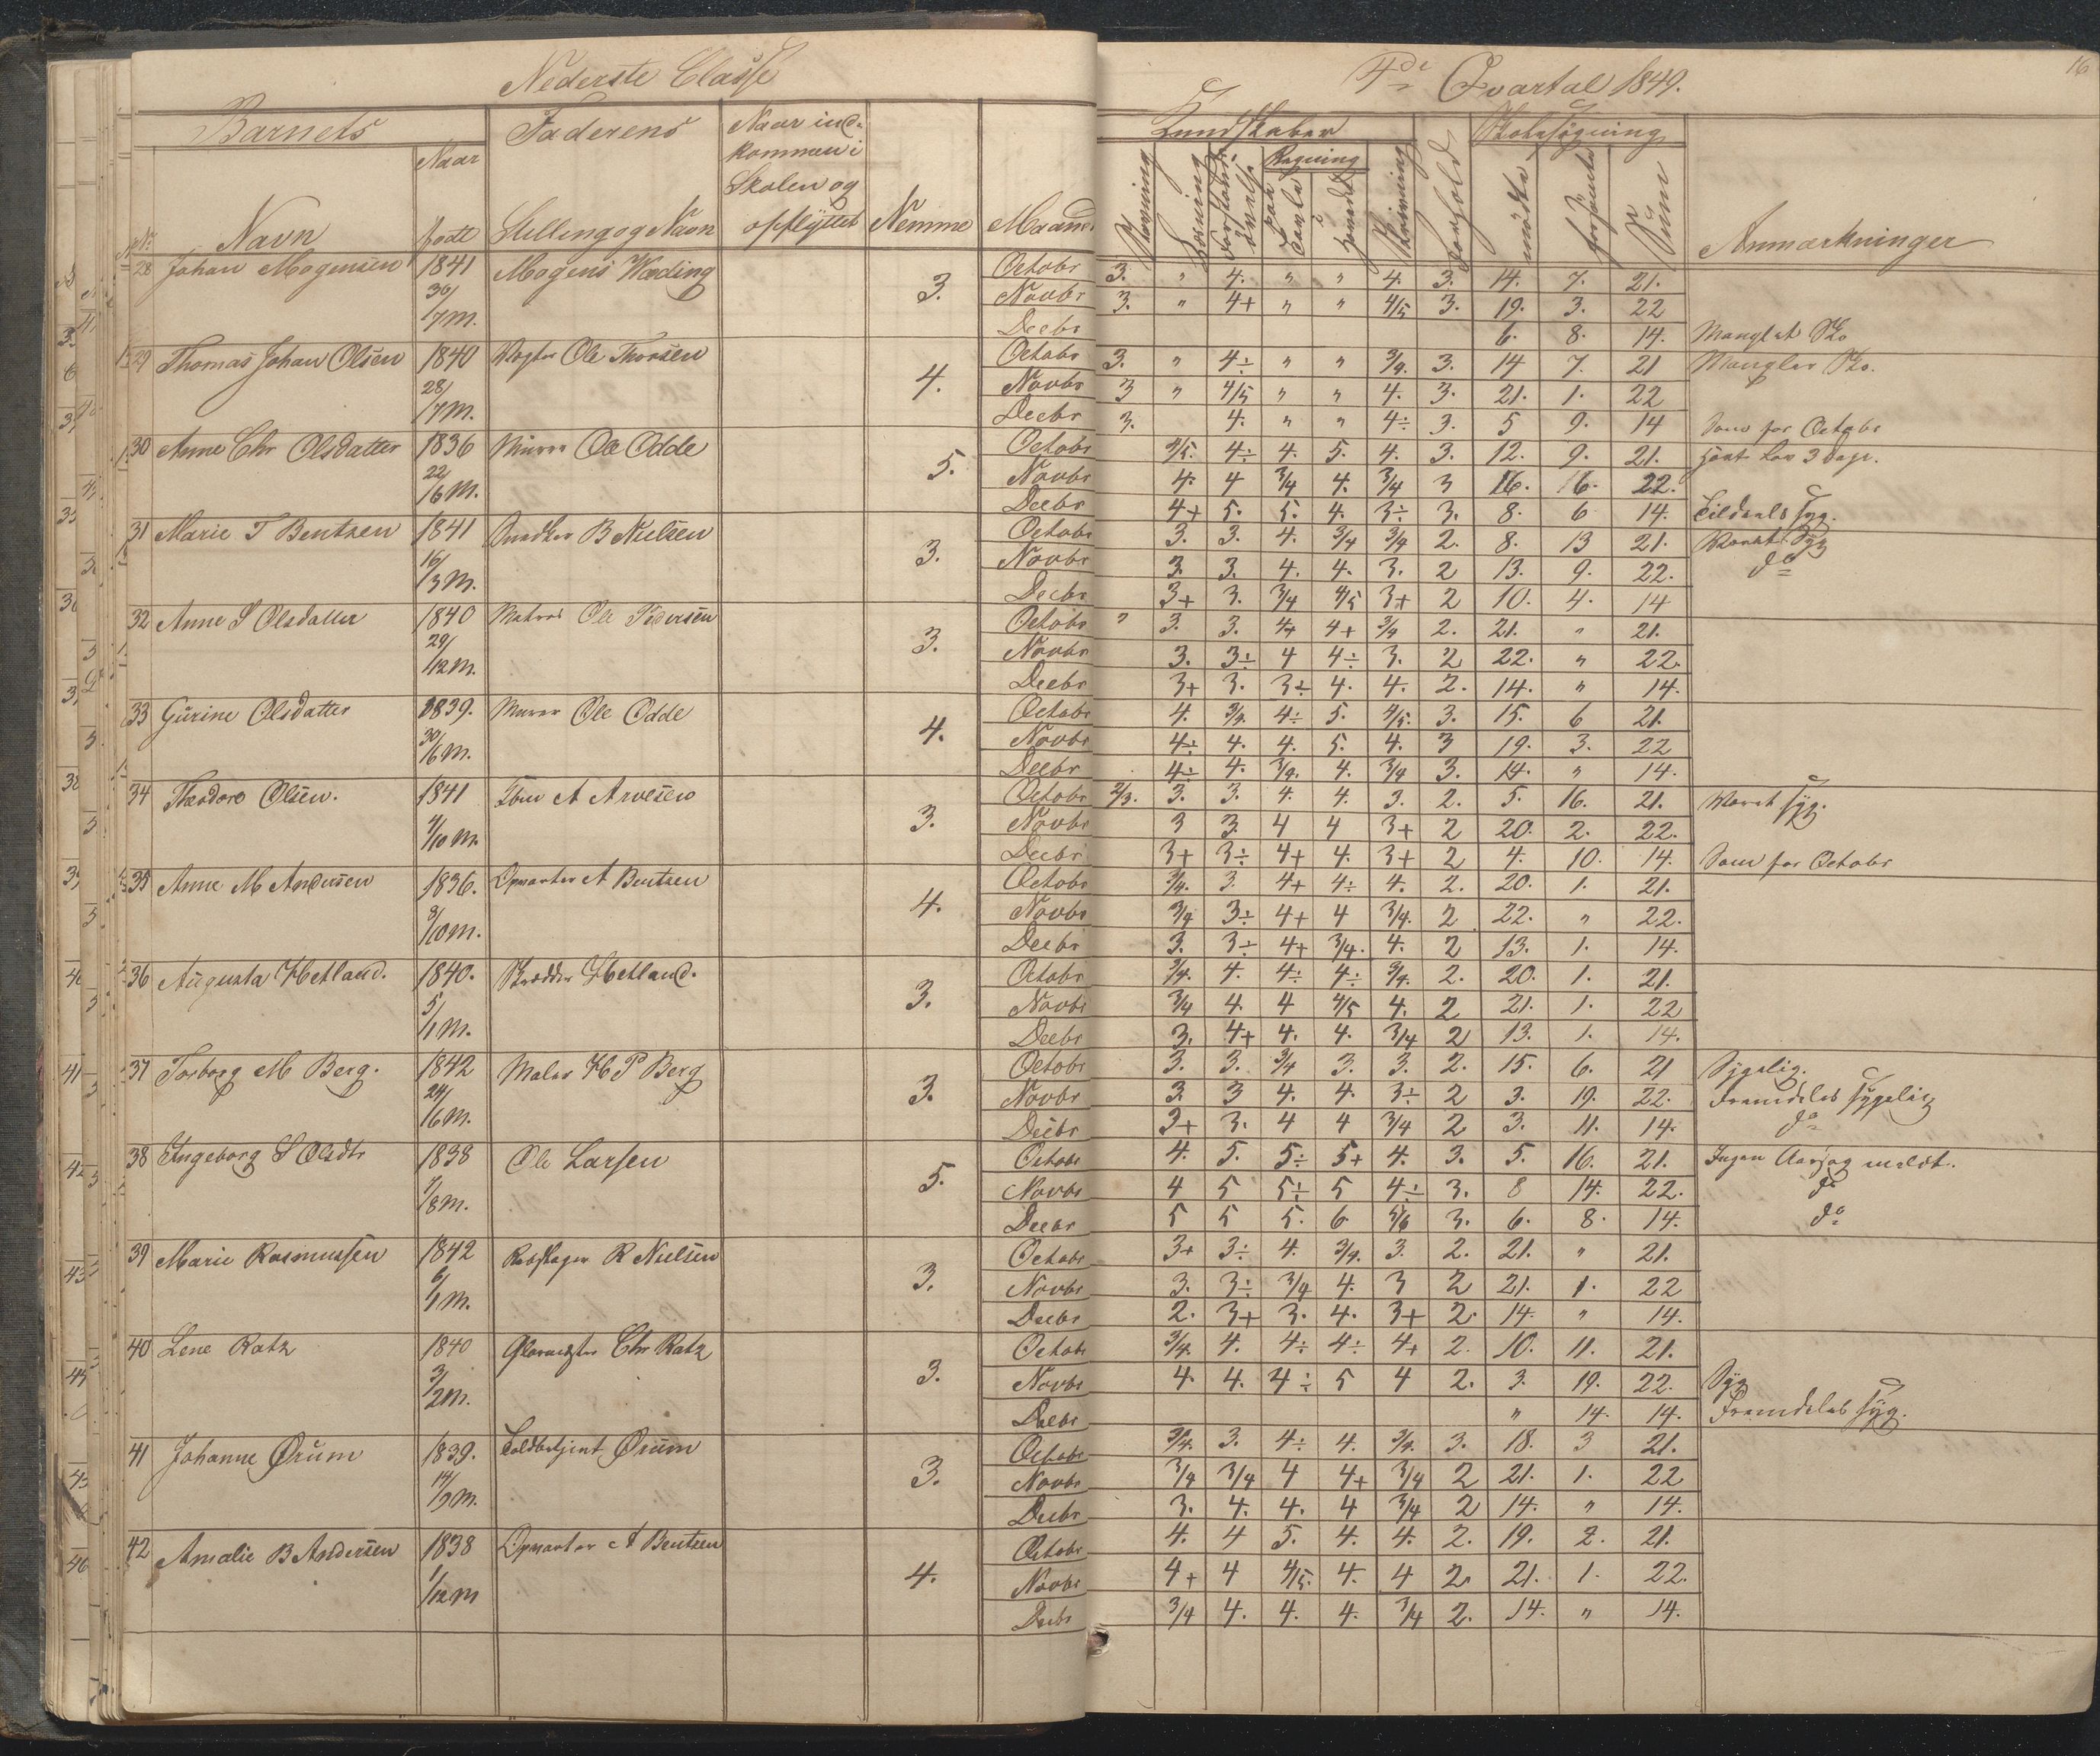 Nederste Classe
4de Qvartal 1849.
16
Barnets Faderens Naar ind-
kommen i
Skolen og
opflyttet
Navn Naar
født Stilling og Navn Nemme Maaned
Kundskaber Skolesøgning
Regning
Stavning
Læsning
Tavle
Skrivning
Forhold
mødte
forsømte
Sum
Anmærkninger
28 Johan Mogensen 1841 Mogens Wæding 3. Octobr 3. " 4. " " 4. 3. 14. 7. 21.
30/ Novbr 3. " 4+ " " 4/5 3. 19. 3. 22
/7 M. Decbr 6. 8. 14. Manglet Sko
29 Thomas Johan Olsen 1840 Ole Thorsen 4. Octobr 3. " 4÷ " " 3/4. 3. 14 7. 21 Mangler Sko.
28/ Novbr 3 " 4/5 " " 4. 3. 21. 1. 22
/7 M. Decbr 3. 4. " " 4÷ 3. 5 9. 14 Som for Octobr
30 Anne Chr Olsdatter 1836 Murer Ole Odde 5. Octobr 4/5. 4÷ 4. 5. 4. 3. 12. 9. 21. Lov 3 Dage.
22/ Novbr 4. 4 3/4 4. 3/4 3 16. 16. 22.
/6 M. Decbr 4+ 5. 5. 4. 3÷ 3. 8. 6 14. Tildeels syg.
31 Marie T Bentzen 1841 Snedker B Nielsen 3. Octobr 3. 3. 4. 3/4 3/4 2. 8. 13 21. Været Syg
16/ Novbr 3. 3. 4. 4. 3. 2 13. 9. 22. do
/3 M. Decbr 3+ 3. 3/4 4/5 3+ 2 10. 4. 14
32 Anne S Olsdatter 1840 Matros Ole Pedersen 3. Octobr " 3. 3. 4+ 4+ 3/4 2. 21. " 21.
29/ Novbr 3. 3÷ 4 4÷ 3. 2 22. " 22.
/12 M. Decbr 3+ 3. 3÷ 4. 4. 2. 14. " 14.
33 Gurine Olsdatter 1839. Murer Ole Odde 4. Octobr 4. 3/4. 4÷ 5. 4/5. 3. 15. 6 21.
30/ Novbr 4÷ 4. 4. 5. 4. 3 19. 3. 22
/6 M. Decbr 4÷ 4. 3/4. 4. 3/4 3. 14. " 14.
34 Theodore Olsen. 1841 A Arvesen 3. Octobr 2/3. 3. 3. 4. 4. 3. 2. 5. 16. 21. Været syg.
/10 M. Novbr 3 3. 4 4 3+ 2 20. 2. 22.
Decbr 3+ 3÷ 4+ 4. 3+ 2 4. 10. 14. Som for Octobr
35 Anne M Andersen 1836. Opvarter A Bentzen 4. Octobr 3/4. 3. 4+ 4÷ 4. 2. 20. 1. 21.
/10 M. Novbr 3/4 3÷ 4+ 4 3/4. 2 22. " 22.
Decbr 3. 3÷ 4+ 3/4. 4. 2 13. 1. 14.
36 Augusta Hetland. 1840. Skrædder Hetland. 3. Octobr 3/4. 4. 4÷ 4÷ 3/4. 2. 20. 1. 21.
5/ Novbr 3/4 4. 4 4/5 4. 2 21. 1. 22
/1 M. Decbr 3. 4+ 4. 4. 3/4 2 13. 1. 14.
37 Torborg M Berg. 1842 Maler H P Berg 3. Octobr 3. 3. 3/4 3. 3. 2. 15. 6. 21 Sygelig.
24/ Novbr 3 3 4. 4. 3÷ 2 3. 19. 22. Fremdeles sygelig
/6 M. Decbr 3+ 3. 4 4 3/4 2 3. 11. 14. do
38 Ingeborg S Olsdtr 1838 Ole Larsen 5. Octobr 4. 5. 5÷ 5+ 4. 3. 5. 16. 21. Ingen Aarsag meldt.
/8 M. Novbr 4 5 5÷ 5 4÷ 3. 8 14. 22. do
Decbr 5 5 5. 6 5/6 3. 6. 8. 14. do
39 Marie Rasmussen 1842 Rebslager R Nielsen 3. Octobr 3+ 3÷ 4. 3/4. 3. 2. 21. " 21.
6/ Novbr 3. 3÷ 3/4 4. 3 2 21. 1. 22
/1 M. Decbr 2. 3+ 3. 4. 3+ 2. 14. " 14.
40 Lene Ratz 1840 Glarmester Chr Ratz 3. Octobr 3/4. 4. 4÷ 4÷ 4+ 2. 10. 11. 21.
3/ Novbr 4. 4. 4÷ 5 4 2. 3. 19. 22. Syg
/2 M. Decbr " 14. 14. Fremdeles syg.
41 Johanne Ørum 1839. Toldbetjent Ørum 3. Octobr 3/4. 3. 4÷ 4. 3/4. 3. 18. 3 21.
14/ Novbr 3/4 3/4 4 4+ 3/4 2 21. 1. 22
Decbr 3. 4. 4. 4 3/4 2 14. " 14.
42 Amalie B Andersen 1838 Opvarter A Bentzen 4. Octobr 4. 4 5. 4. 4. 2. 19. 2. 21.
1/ Novbr 4+ 4 4/5. 4. 4 2 21. 1. 22.
/12 M Decbr 3/4 4. 4. 4. 3/4 2. 14. " 14.